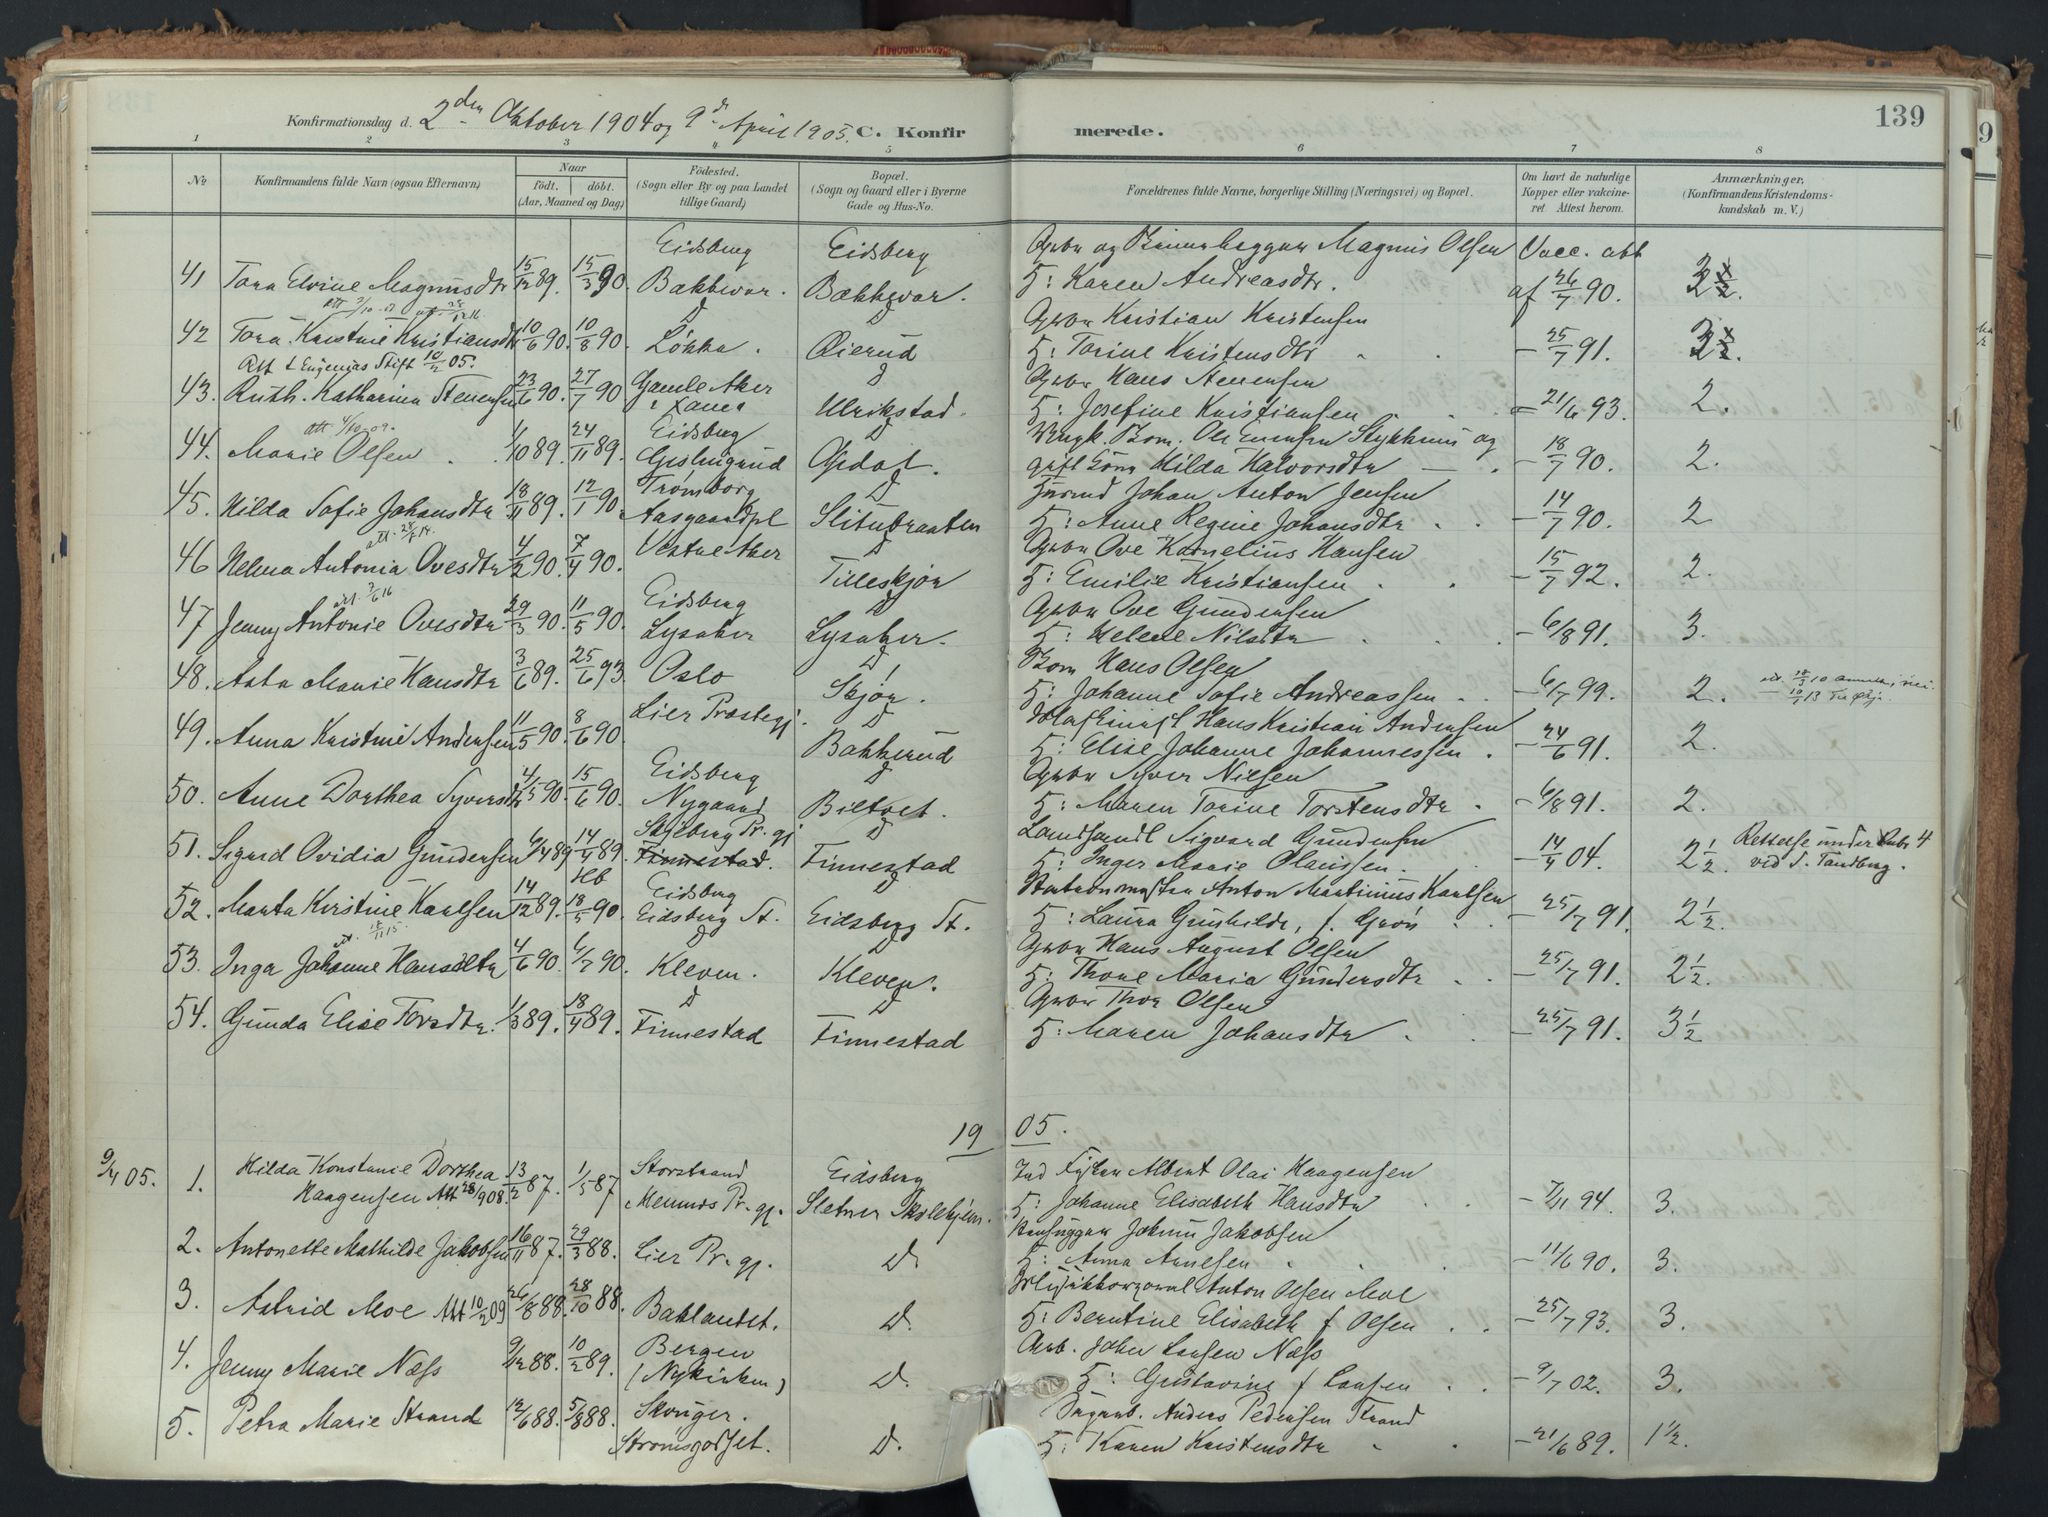 139
Konfirmationsdag d. 2den Oktober 1904 og 9d. April 1905. C. Konfir merede.
1 2 3 4 5 6 7 8
No
Konfirmandens fulde Navn (ogsaa Efternavn)
Naar
födt. döbt.
(Aar, Maaned og Dag)
Födested.
(Sogn eller By og paa Landet
tillige Gaard)
Bopæl.
(Sogn og Gaard eller i Byerne
Gade og Hus-No.
Forældrenes fulde Navne, borgerlige Stilling (Næringsvei) og Bopæl.
Om havt de naturlige
Kopper eller vakcine-
ret Attest herom.
Anmærkninger,
(Konfirmandens Kristendoms-
kundskab m. V.)
Eidsberg Eidsberg Gbr og Magnus Olsen Vacc. att
41 Tora Elvine Magnusdtr 15/12 89. 15/3 90. Bækkevar. Bækkevar. H: Karen Andreasdtr. af 26/7 90.
D D Gbr Kristian Kristensen
42 Tora Kristine Kristiansdtr 10/6 90. 10/8 90. Løkka. Øierud H: Torine Kristensdtr - 25/7 91.
Att t Eugenias Stift 10/2 05. D Gbr Hans Stenersen
43. Ruth Katharina Stenersen 23/6 90. 27/7 90 Gamle Aker Ulrikstad. H: Josefine Kristiansen - 21/6 93. 2.
att 4/10 09. Eidsberg D Ole Stykkmus og
44. Marie Olsen 1/10 89. 24/11 89. Opdal. Hilda Halvorsdtr - 18/7 90. 2.
Trømborg D Johan Anton Jensen
45. Hilda Sofie Johansdtr 18/11 89. 12/1 90. Aasgaardpl Slitubraaten H: Anne Regine Johansdtr - 14/7 90. 2
Vestre Aker D Gbr Ove Kornelius Hansen
46 Helena Antonia Ovesdtr 4/2 90. 7/4 90. Tilleskjør H: Emilie Kristiansen - 15/7 92. 2.
Eidsberg D Gbr Ove Gundersen
47 Jenny Antonie Ovesdtr 29/3 90. 11/5 90. Lysaker Lysaker. H: Helene Nilsdtr - 6/8 91. 3.
D Bom Hans Olsen
48. Asta Marie Hansdtr 3/6 89. 25/6 93 Oslo Skjør. H: Johanne Sofie Andreassen - 6/7 99. 2.
Lier Præstegj. D Hans Kristian Andersen
49. Anna Kristine Andersen 11/5 90. 8/6 90. Bakkerud H: Elise Johanne Johannessen - 24/6 91. 2.
Eidsberg D Gbr Syver Nilsen
50. Anne Dorthea Syversdtr 4/5 90. 15/6 90. Nygaard Biltvet. H: Maren Torine Torstensdtr - 6/8 91. 2.
Skjeberg Pr. gj D Landhandl Sigvard Gundersen Rettelse under Rubr 4
51. Sigrid Ovidia Gundersen 6/4 89 14/4 89. Finnestad. Finnestad H: Inger Marie Olaussen - 14/4 04. 2 1/2 ved S. Tandberg.
Hb Eidsberg D Stationsmester Anton Martinius Karlsen
52. Marta Kirstine Karlsen 14/12 89. 18/5 90. Eidsberg St. Eidsberg St. H: Laura Gunhilde, f. Grøn - 25/7 91. 2 1/2
D D Gbr Hans August Olsen
53. Inga Johanne Hansdtr 4/6 90. 6/7 90. Kleven. Kleven. H: Thone Maria Gundersdtr - 25/7 91. 2 1/2
D D Gbr Thor Olsen
54. Gunda Elise Torsdtr. 1/3 89. 18/4 89. Finnestad Finnestad H: Maren Johansdtr - 25/7 91. 3 1/2
19 05.
9/4 05. 1. Hilda Konstanse Dorthea 13/2 87. 1/5 87 Storstrand Eidsberg Fisker Albert Olai Haagensen
Haagensen Att 28/9 08. Pr. gj. Sletner Skolehjem. H: Johanne Elisabeth Hansdtr - 7/11 94. 3.
Stenhugger Jakobsen
2. Antonette Mathilde Jakobsen 16/11 87. 29/3 88. Lier Pr. gj. D. H: Anna Arnesen - 11/6 90. 3.
Anton Olsen Moe
3. Astrid Moe Att 10/2 09 26/8 88. 28/10 88. Baklandet. D. H: Berntine Elisabeth f Olsen - 25/7 93. 3.
Bergen Arb. John Larsen Næss
4. Jenny Marie Næss 9/12 88. 10/2 89. (Nykirken) D. H: Gustavine f Larsen - 9/7 02. 3.
Skouger. Anders Pedersen Strand
5. Petra Marie Strand 12/6 88. 5/8 88. Strømsgodset. D. H: Karen Kristensdtr - 21/6 89. 1 1/2.